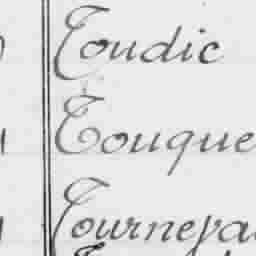 Toudic
Touque
Tournepa